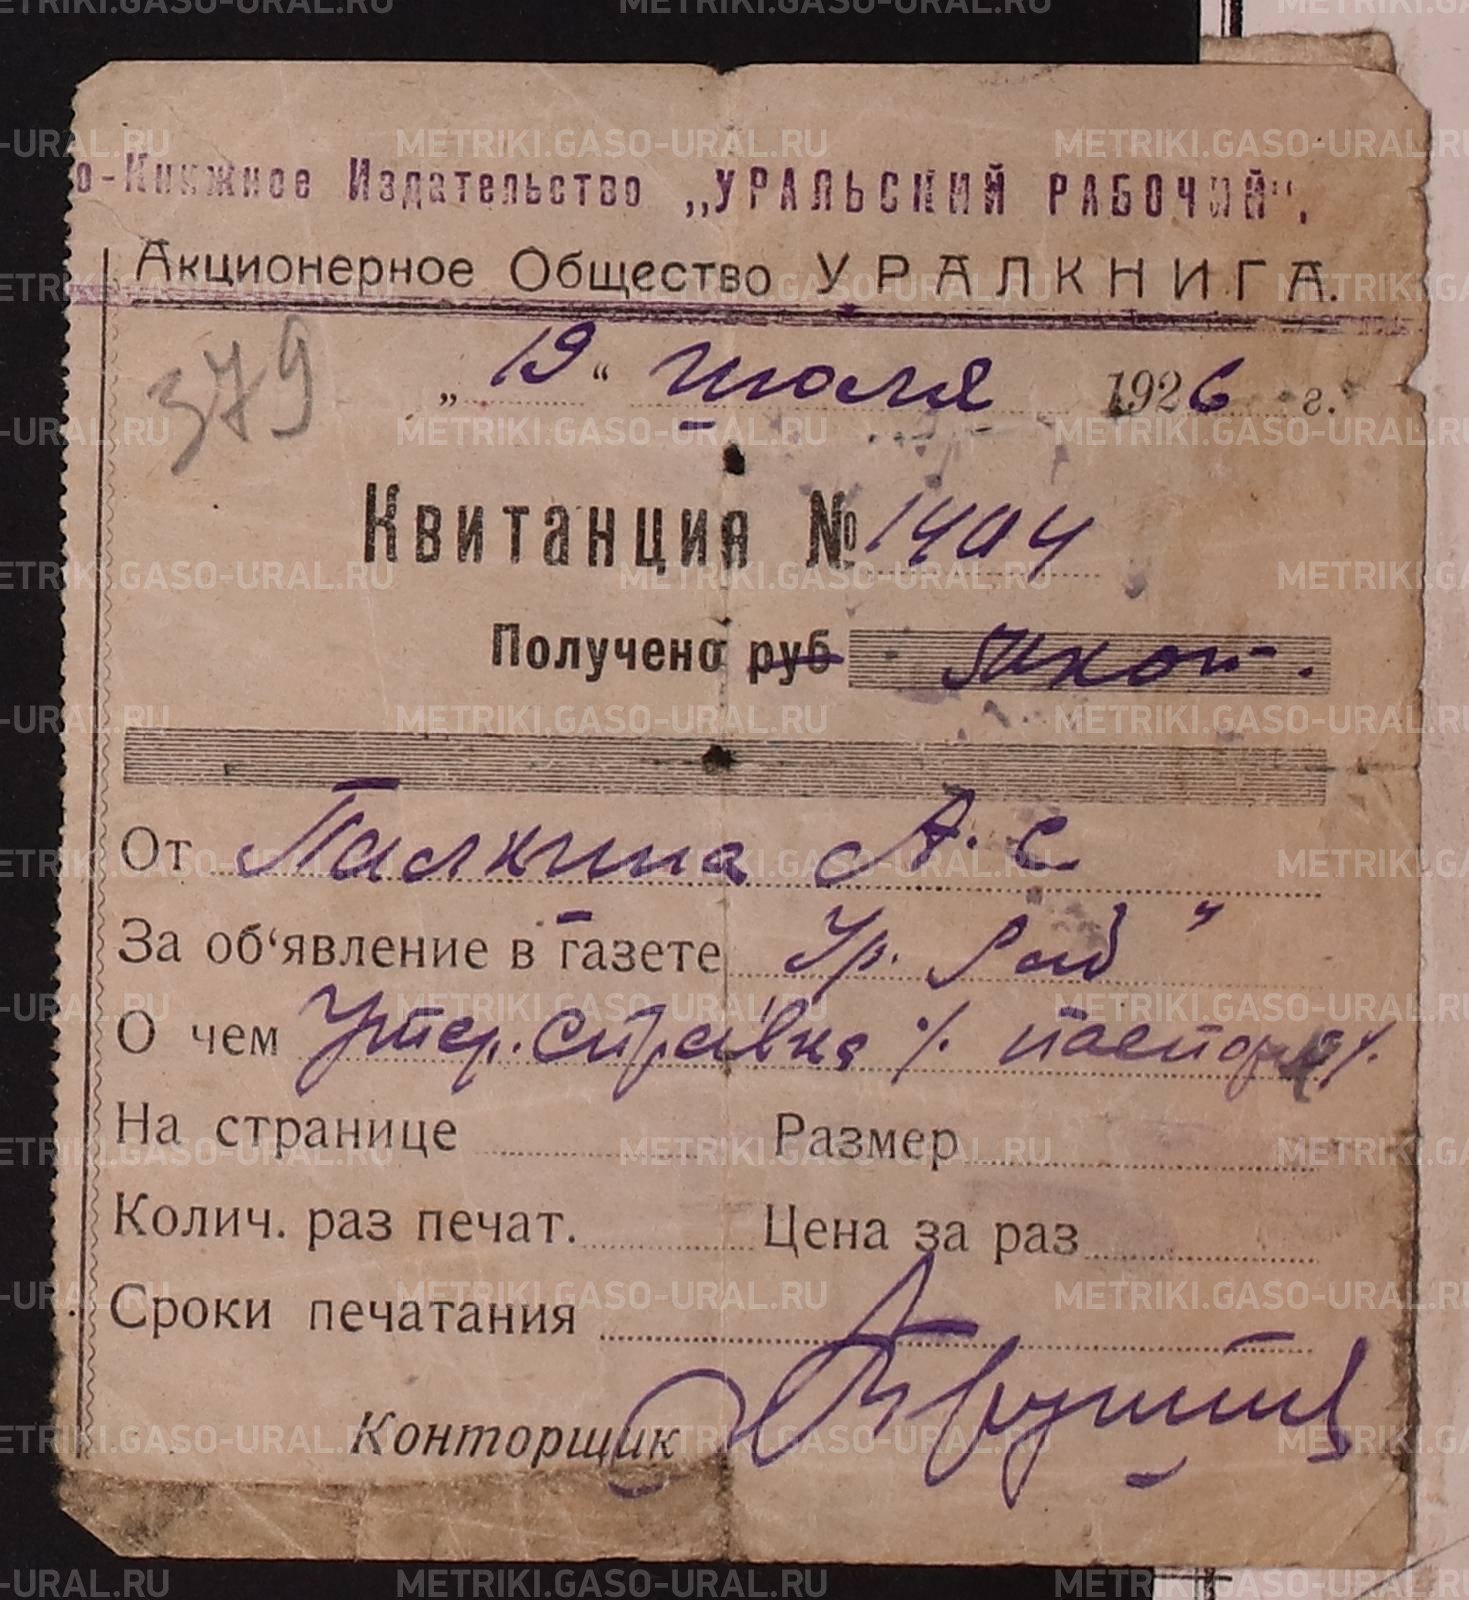 о-Книжное Издательство „УРАЛЬСКИЙ РАБОЧИЙ".
Акционерное Общество УРАЛКНИГА.
379
„19" Июля 1926 г.
Квитанция №
Получено руб коп.
От Палкина А. С
За об'явление в газете Ур. Раб"
О чем Утер. справка
На странице Размер
Колич. раз печат. Цена за раз
Сроки печатания
Конторщик
METRIKI.GASO-URAL.RU